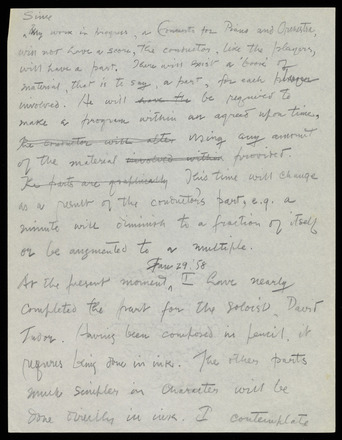 Since
"My work in progress, a Concerto for Piano and Orchestra,
will not have a score, the conductor, like the players,
will have a part. There will exist a 'book' of
material, that is to say, a part, for each player
involved. He will be required to
make a program within an agreed upon time,
the conductor will alter using any amount
of the material involved within provided.
The parts are graphically This time will change
as a result of the conductor's part, e.g. a
minute will diminish to a fraction of itself
or be augmented to a multiple.
Jan 29 '58
At the present moment, I have nearly
completed the part for the soloist, David
Tudor. Having been composed in pencil, it
requires being done in ink. The other parts
much simpler in character will be
done directly in ink. I contemplate